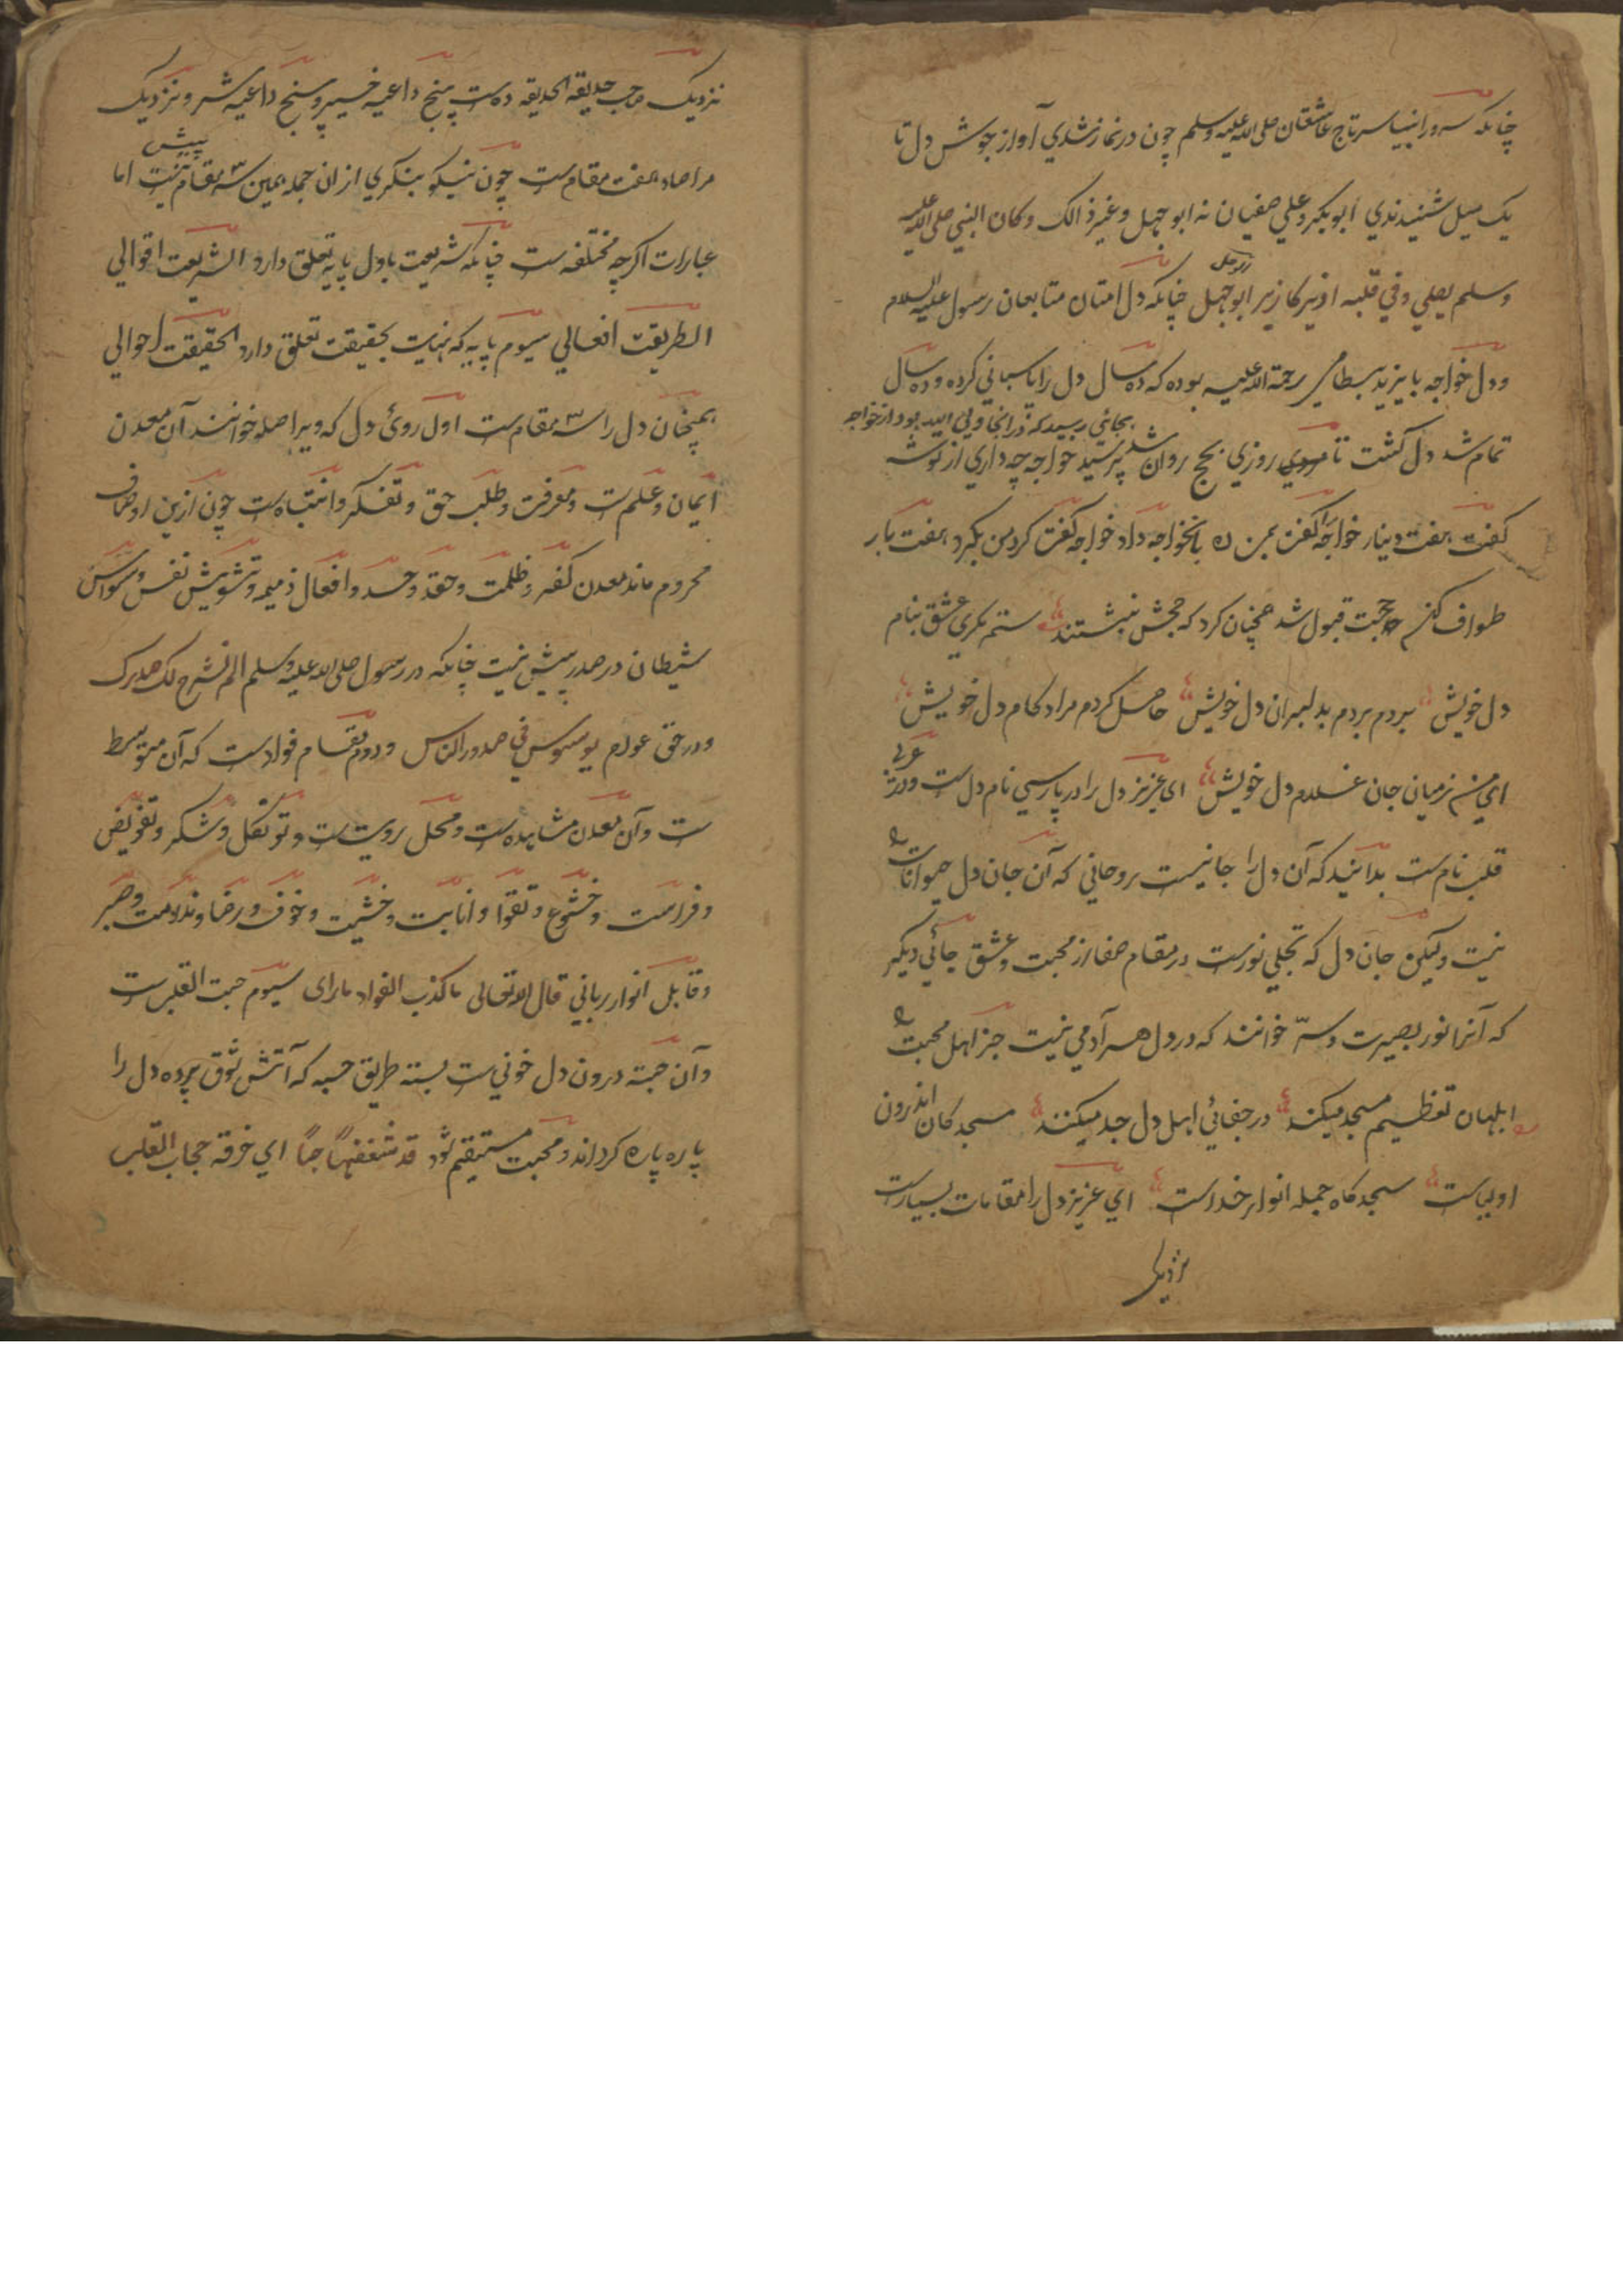 چنانکه سرور انبیا سرتاج عاشقان صلی الله علیه وسلم چون در نماز شدی آواز جوش دل تا
یک میل شنیدندی ابوبکر و علی صفیان نه ابو جهل و غیر ذالک وکان النبی صلی الله علیه
وسلم یصلی وفی قلبه ازیر کازیر ابو جهل چنانکه دل امتان متابعان رسول علیه السلام
ودل خواجه بایزید بسطامی رحمة الله علیه بوده که ده سال دل را پاسبانی کرده و ده سال
بجائی رسید که در انجا ولی الله بود از خواجه
تمام شد دل کشت تا روزی بحج روان شد پرسید خواجه چه داری از توشه
کفت هفت دینار خواجه را کفت بمن ده بانخواجه داد خواجه کفت کرد من بکرد هفت بار
طواف کن حجت قبول شد همچنان کرد که حجش نبشتند ستم بکری عشق بنام
دل خویش بردم بردم بدلبران دل خویش حاصل کردم مراد کام دل خویش
ای من زمیانی جان غلام دل خویش ای عزیز دل را در پارسی نام دل ست ودر عربی
قلب نام ست بدانید که آن دل را جانیست روحانی که آن جان دل حیوانات
نیست ولیکن جان دل که تجلی نورست در مقام صفا از محبت وعشق جائی دیکر
که آنرا نور بصیرت وسرّ خوانند که در دل هر آدمی نیست جز اهل محبت
ابلهان تعظیم مسجد میکنند در جفائی اهل دل جد میکنند مسجد کان اندرون
اولیاست سجد کاه جمله انوار خداست ای عزیز دل را مقامات بسیارست
نزدیک
نزدیک صاحب حدیقة الحدیقه ده ست پنج داعیه خیر و پنج داعیه شر و نزدیک
مرصاد هفت مقام ست چون نیکو بنکری ازان جمله همین سه مقام پیش نیست اما
عبارات اکرچه مختلفه ست چنانکه شریعت باول پایه تعلق دارد الشریعت اقوالی
الطریقت افعالی سیوم پایه که نهایت بحقیقت تعلق دارد الحقیقت احوالی
همچنان دل را سه مقام ست اول روئ دل که ویرا صدر خوانند آن معدن
ایمان وعلم ست ومعرفت وطلب حق وتفکر وانتباه ست چون ازین اوصاف
محروم ماند معدن کفر وظلمت وحقد وحسد وافعال ذمیمه وتشویش نفس ووسواس
شیطان در صدر پیش نیست چنانکه در رسول صلی الله علیه وسلم الم نشرح لک صدرک
ودر حق عوام یوسوس فی صدور الناس ودوم مقام فوادست که آن متوسط
ست وآن معدن مشاهده ست ومحل رویت ست وتوکل وشکر وتفویض
وفراست وخشوع وتقوا وانابت وخشیت وخوف ورضا وندامت وصبر
وقابل انوار ربانی قال الله تعالی ما کذب الفواد ما رای سیوم حبت القلب ست
وآن حبته درون دل خونی ست بسته طریق حبه که آتش شوق پرده دل را
پاره پاره کرداند ومحبت مستقیم شود قد شغفها حبًا ای خرقه حجاب القلب